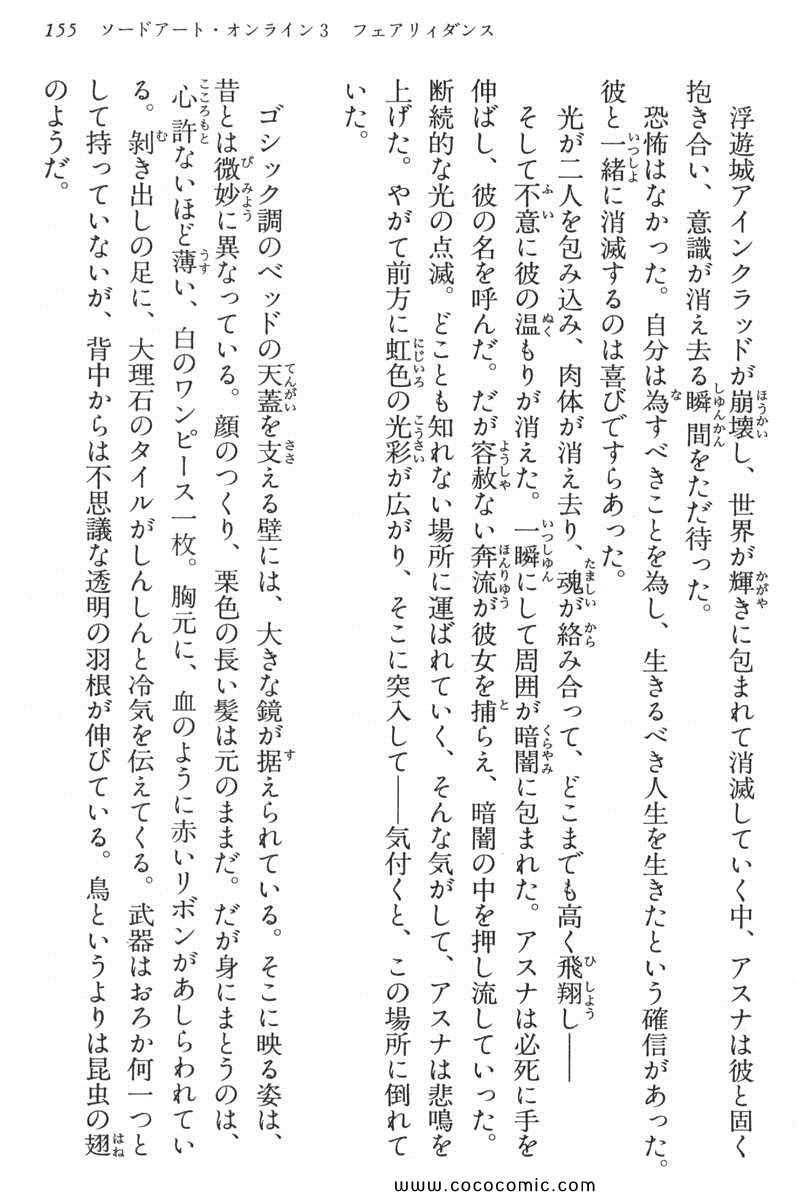 155　ソードアート・オンライン3　フェアリィダンス
　浮遊城アインクラッドが崩壊し、世界が輝きに包まれて消滅していく中、アスナは彼と固く
抱き合い、意識が消え去る瞬間をただ待った。
　恐怖はなかった。自分は為すべきことを為し、生きるべき人生を生きたという確信があった。
彼と一緒に消滅するのは喜びですらあった。
　光が二人を包み込み、肉体が消え去り、魂が絡み合って、どこまでも高く飛翔し――
　そして不意に彼の温もりが消えた。一瞬にして周囲が暗闇に包まれた。アスナは必死に手を
伸ばし、彼の名を呼んだ。だが容赦ない奔流が彼女を捕らえ、暗闇の中を押し流していった。
断続的な光の点滅。どことも知れない場所に運ばれていく、そんな気がして、アスナは悲鳴を
上げた。やがて前方に虹色の光彩が広がり、そこに突入して――気付くと、この場所に倒れて
いた。
　ゴシック調のベッドの天蓋を支える壁には、大きな鏡が据えられている。そこに映る姿は、
昔とは微妙に異なっている。顔のつくり、栗色の長い髪は元のままだ。だが身にまとうのは、
心許ないほど薄い、白のワンピース一枚。胸元に、血のように赤いリボンがあしらわれてい
る。剥き出しの足に、大理石のタイルがしんしんと冷気を伝えてくる。武器はおろか何一つと
して持っていないが、背中からは不思議な透明の羽根が伸びている。鳥というよりは昆虫の翅
のようだ。
www.cococomic.com